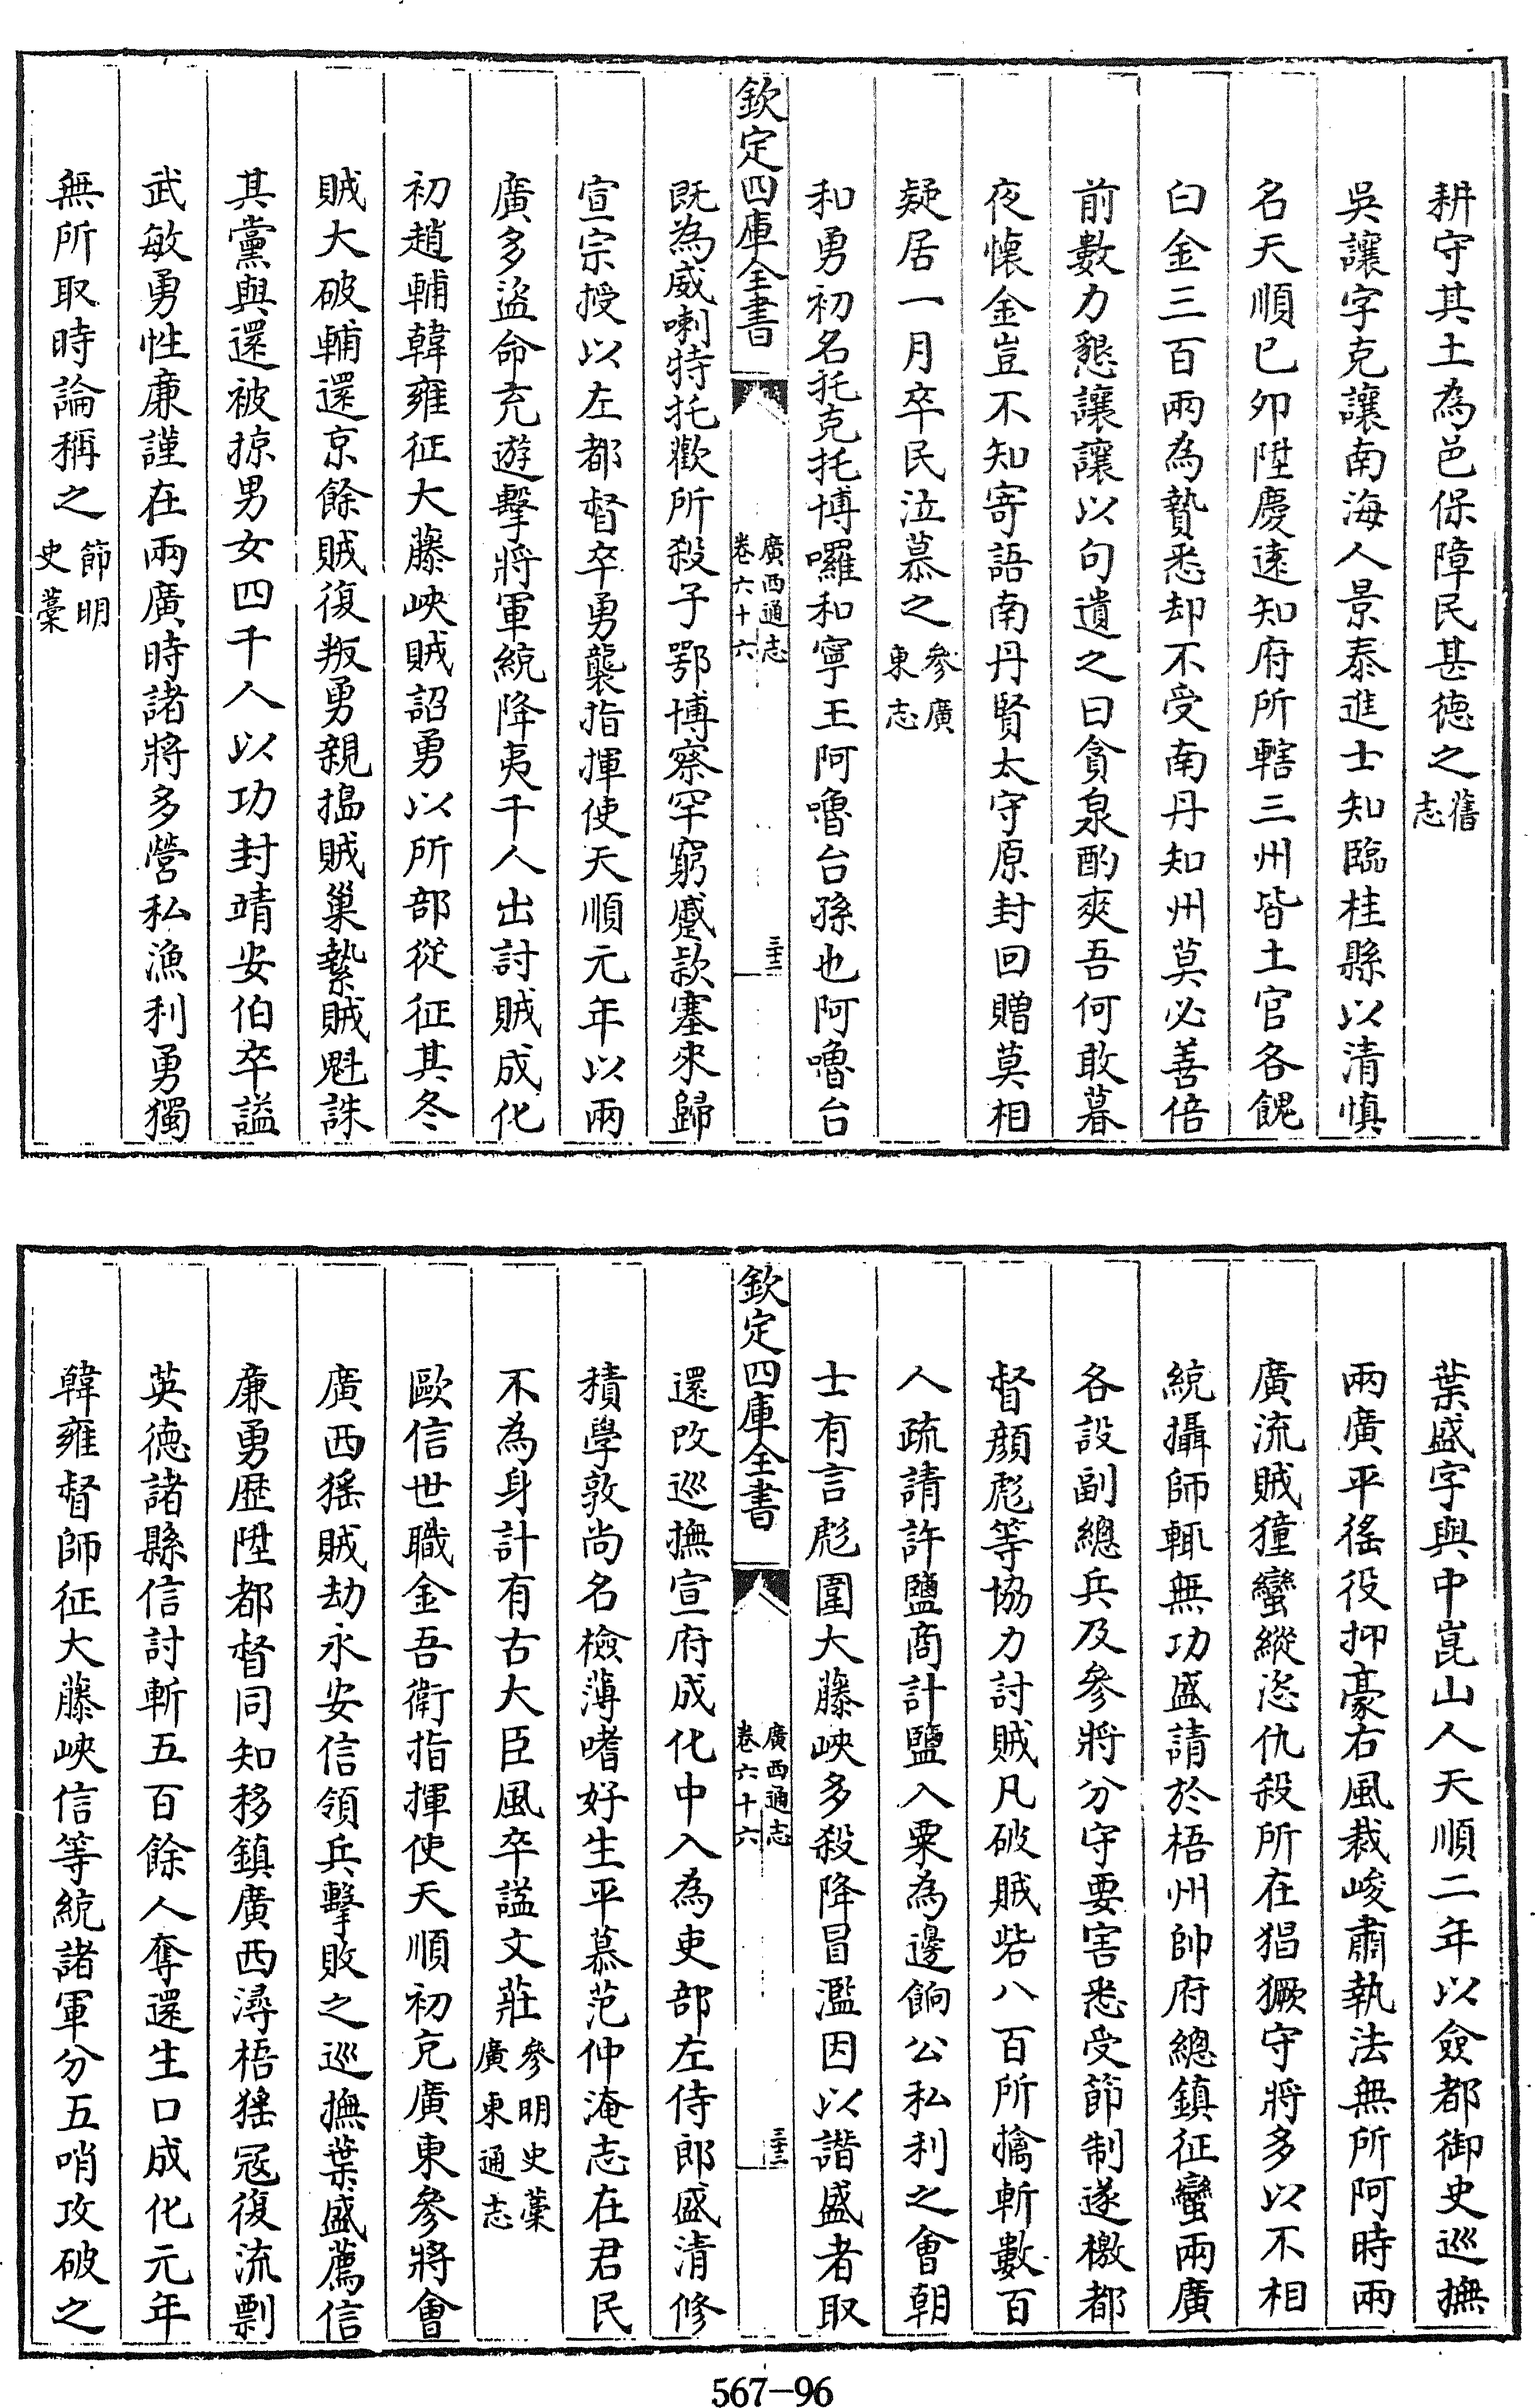 耕守其土為邑保障民甚德之舊志
吳讓字克讓南海人景泰進士知臨桂縣以清慎
名天順已卯陞慶遠知府所轄三州皆土官各餽
白金三百兩為贄悉却不受南丹知州莫必善倍
前數力懇讓讓以句遺之曰貪泉酌爽吾何敢暮
夜懷金豈不知寄語南丹賢太守原封回贈莫相
疑居一月卒民泣慕之參廣東志
和勇初名托克托博囉和寧王阿嚕台孫也阿嚕台
欽定四庫全書
廣西通志
卷六十六
三十三
既為威喇特托歡所殺子鄂博察罕窮蹙款塞來歸
宣宗授以左都督卒勇襲指揮使天順元年以兩
廣多盜命充遊擊將軍統降夷千人出討賊成化
初趙輔韓雍征大藤峽賊詔勇以所部從征其冬
賊大破輔還京餘賊復叛勇親搗賊巢縶賊魁誅
其黨與還被掠男女四千人以功封靖安伯卒謚
武敏勇性廉謹在兩廣時諸將多營私漁利勇獨
無所取時論稱之節明史藁
葉盛字與中崑山人天順二年以僉都御史巡撫
兩廣平徭役抑豪右風裁峻肅執法無所阿時兩
廣流賊獞蠻縱恣仇殺所在猖獗守將多以不相
統攝師輒無功盛請於梧州帥府總鎮征蠻兩廣
各設副總兵及參將分守要害悉受節制遂檄都
督顏彪等協力討賊凡破賊砦八百所擒斬數百
人疏請許鹽商計鹽入粟為邊餉公私利之會朝
士有言彪圍大藤峽多殺降冒濫因以譖盛者取
欽定四庫全書
廣西通志
卷六十六
三十三
還改巡撫宣府成化中入為吏部左侍郎盛清修
積學敦尚名檢薄嗜好生平慕范仲淹志在君民
不為身計有古大臣風卒謚文莊參明史藁廣東通志
歐信世職金吾衛指揮使天順初充廣東參將會
廣西猺賊劫永安信領兵擊敗之巡撫葉盛薦信
廉勇歴陞都督同知移鎮廣西潯梧猺冦復流剽
英德諸縣信討斬五百餘人奪還生口成化元年
韓雍督師征大藤峽信等統諸軍分五哨攻破之
567-96